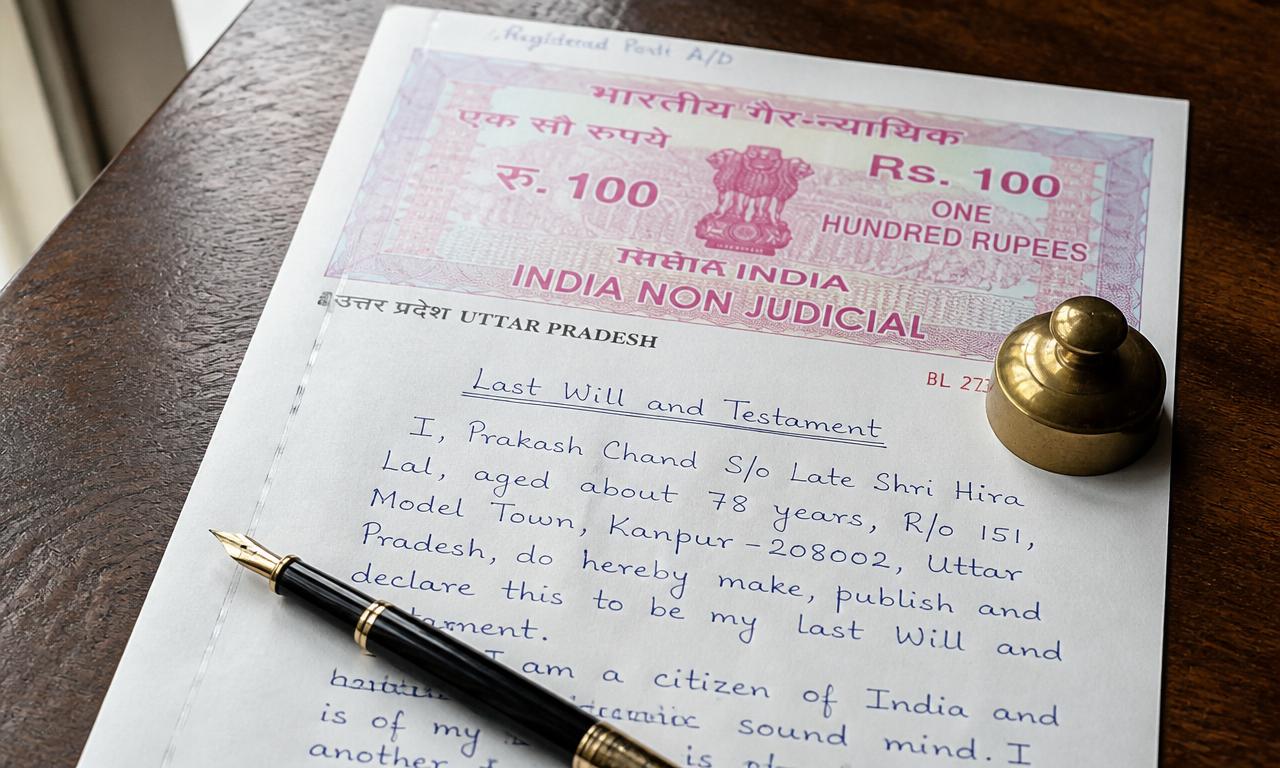 Registered Post A/D
भारतीय गैर-न्यायिक
एक सौ रुपये
रु. 100
Rs. 100
ONE
HUNDRED RUPEES
INDIA
INDIA NON JUDICIAL
उत्तर प्रदेश UTTAR PRADESH
BL 227
Last Will and Testament
I, Prakash Chand S/o Late Shri Hira
Lal, aged about 78 years, R/o 151,
Model Town, Kanpur - 208002, Uttar
Pradesh, do hereby make, publish and
declare this to be my last Will and
I am a citizen of India and
sound mind. I
is of my is
another